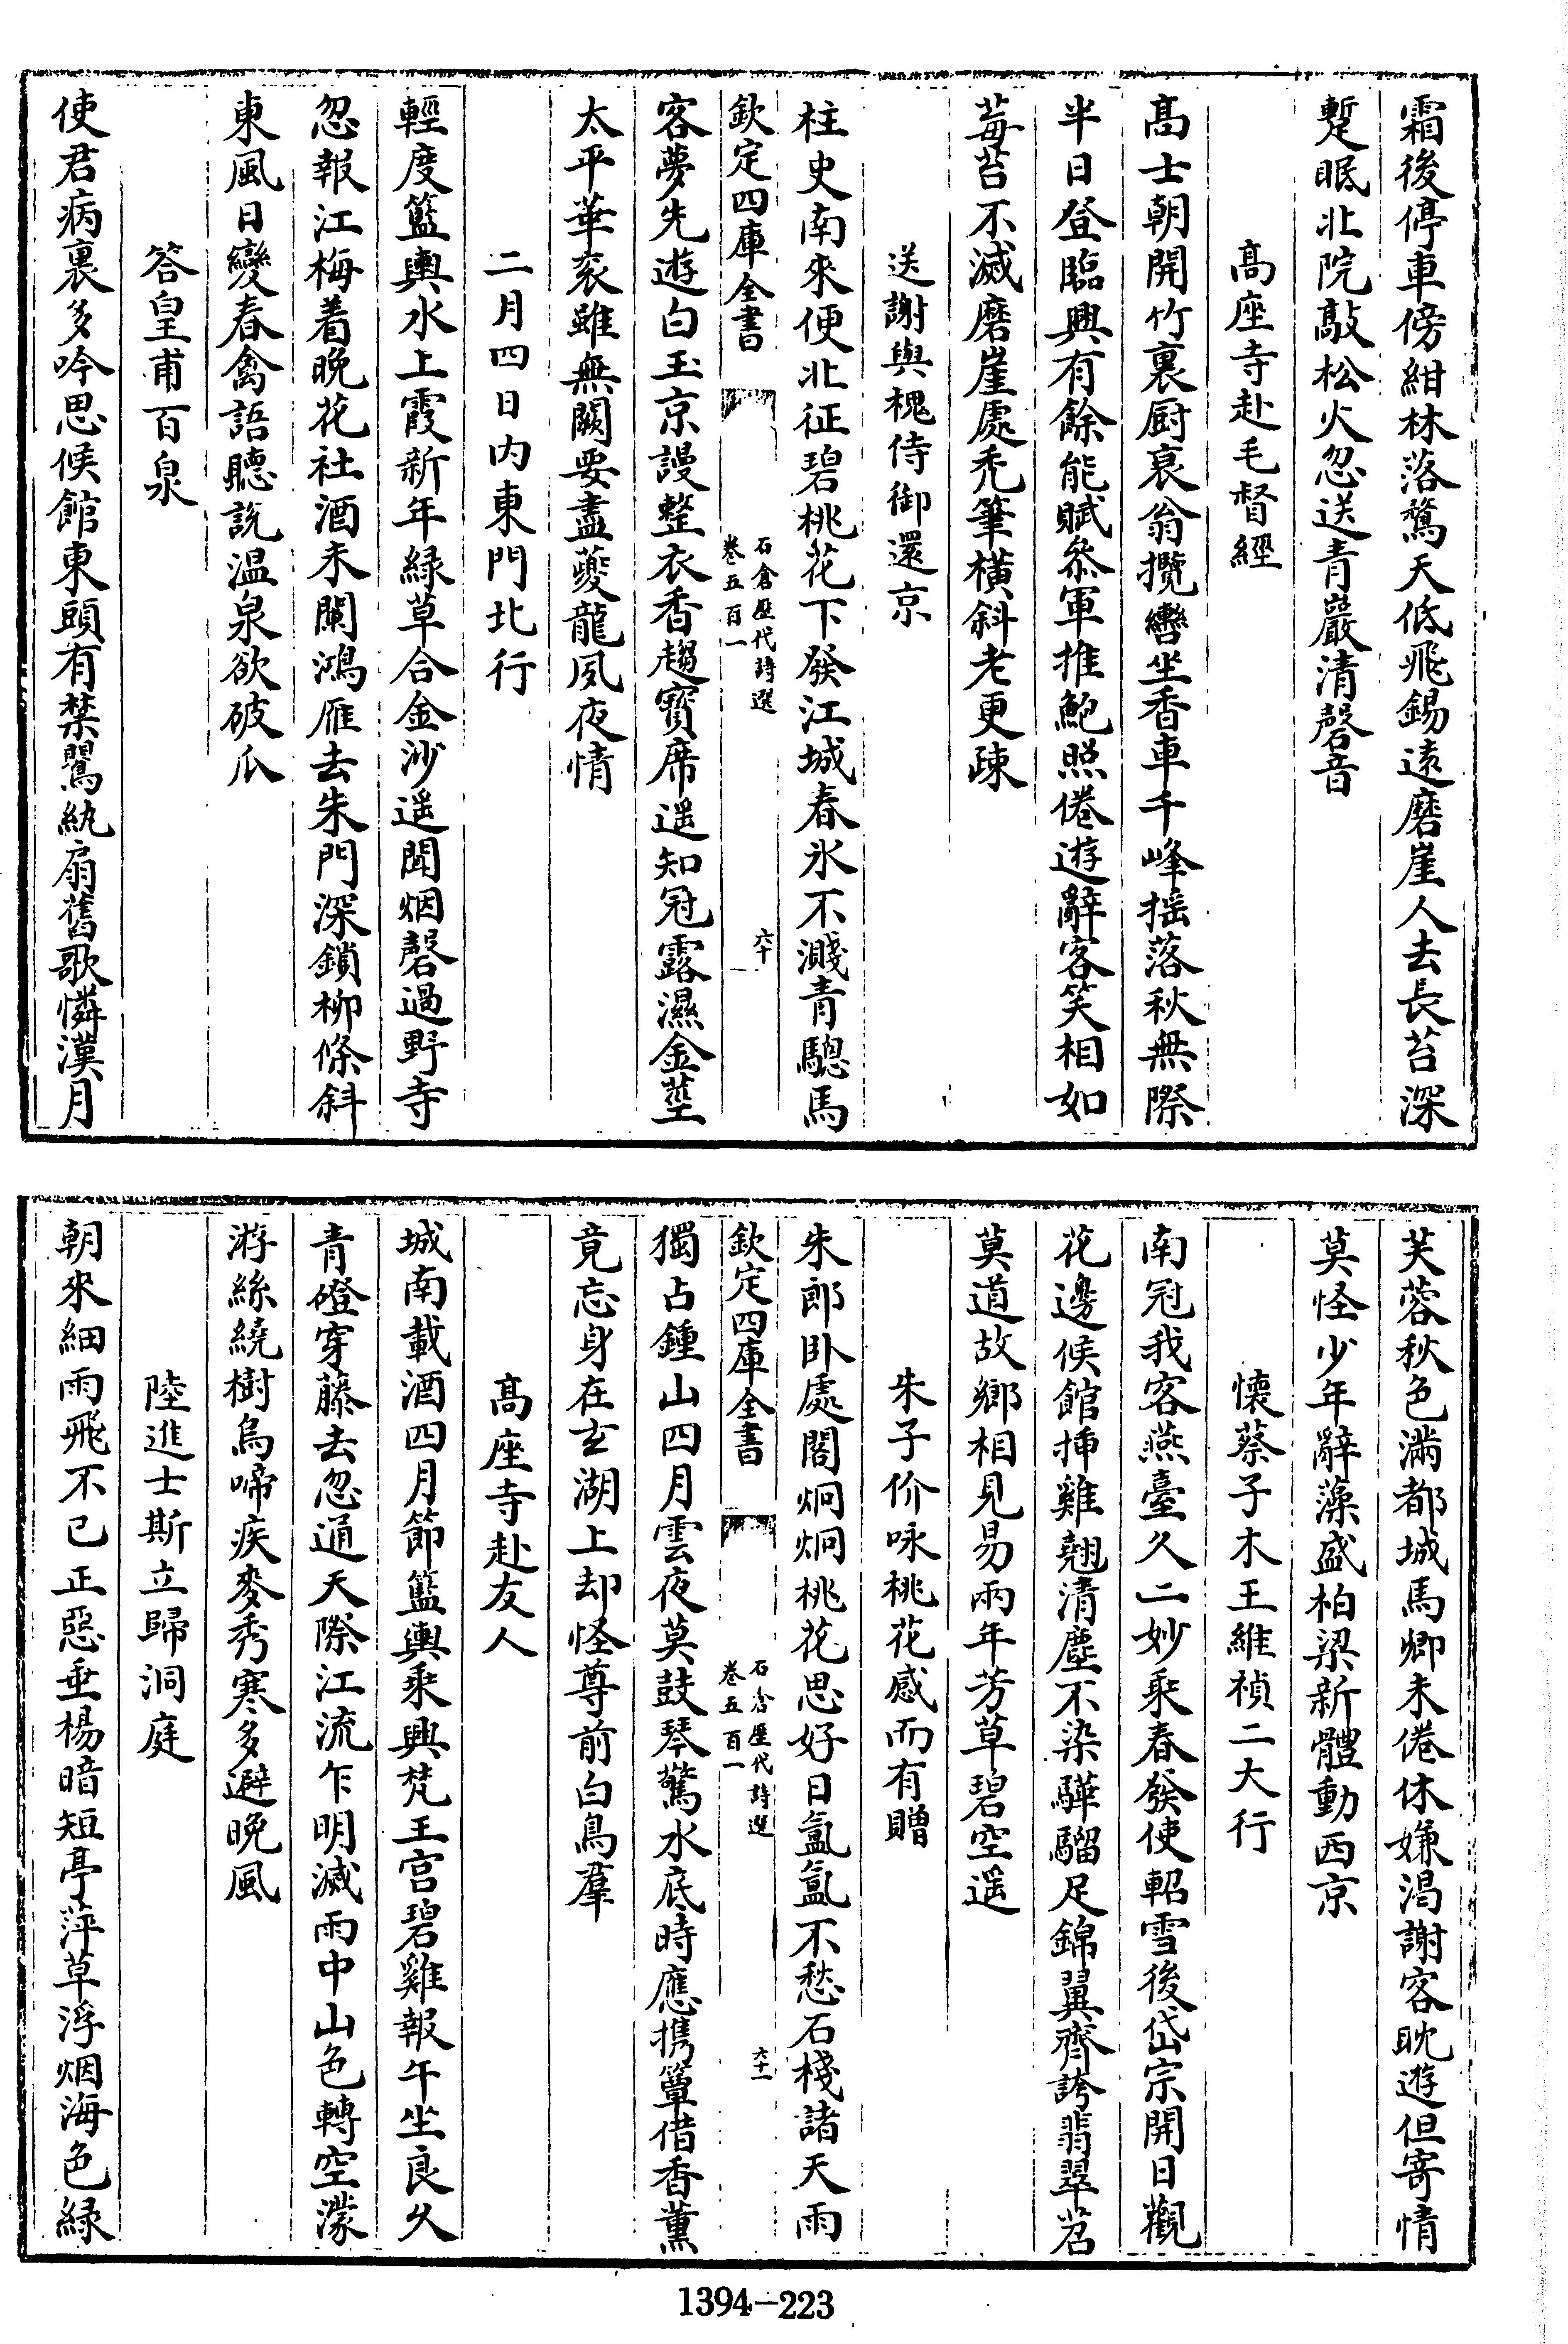 霜後停車傍紺林落鶩天低飛錫遠磨崖人去長苔深
蹔眠北院敲松火忽送青巖清磬音
高座寺赴毛督經
高士朝開竹裏厨哀翁攬轡坐香車千峰摇落秋無際
半日登臨興有餘能賦叅軍推鮑照倦遊辭客笑相如
莓苔不滅磨崖處秃筆横斜老更疎
送謝與槐侍御還京
柱史南來便北征碧桃花下發江城春氷不濺青驄馬
欽定四庫全書
石倉歷代詩選
卷五百一
六十
客夢先遊白玉京謾整衣香趨寳席遥知冠露濕金莖
太平華衮雖無闕要盡夔龍夙夜情
二月四日内東門北行
輕度籃輿水上霞新年緑草合金沙遥聞烟磬過野寺
忽報江梅着晚花社酒未闌鴻雁去朱門深鎖柳條斜
東風日變春禽語聽説温泉欲破瓜
答皇甫百泉
使君病裏多吟思候館東頭有禁鶯紈扇舊歌憐漢月
芙蓉秋色滿都城馬卿未倦休嫌渴謝客耽遊但寄情
莫怪少年辭藻盛柏梁新體動西京
懐蔡子木王維禎二大行
南冠我客燕臺久二妙乘春發使軺雪後岱宗開日觀
花邊候館揷雞翹清塵不染驊騮足錦翼齊誇翡翠苕
莫道故鄉相見易兩年芳草碧空遥
朱子价咏桃花感而有贈
朱郎卧處閣炯炯桃花思好日氲氲不愁石棧諸天雨
欽定四庫全書
石倉歷代詩選
卷五百一
六十一
獨占鍾山四月雲夜莫鼓琴驚水底時應携簟借香薰
竟忘身在玄湖上却怪尊前白鳥羣
高座寺赴友人
城南載酒四月節籃輿乘興梵王宫碧雞報午坐良久
青磴穿藤去忽通天際江流乍明滅雨中山色轉空濛
游絲繞樹烏啼疾麥秀寒多避晚風
陸進士斯立歸洞庭
朝來細雨飛不已正惡垂楊暗短亭萍草浮烟海色緑
1394—223